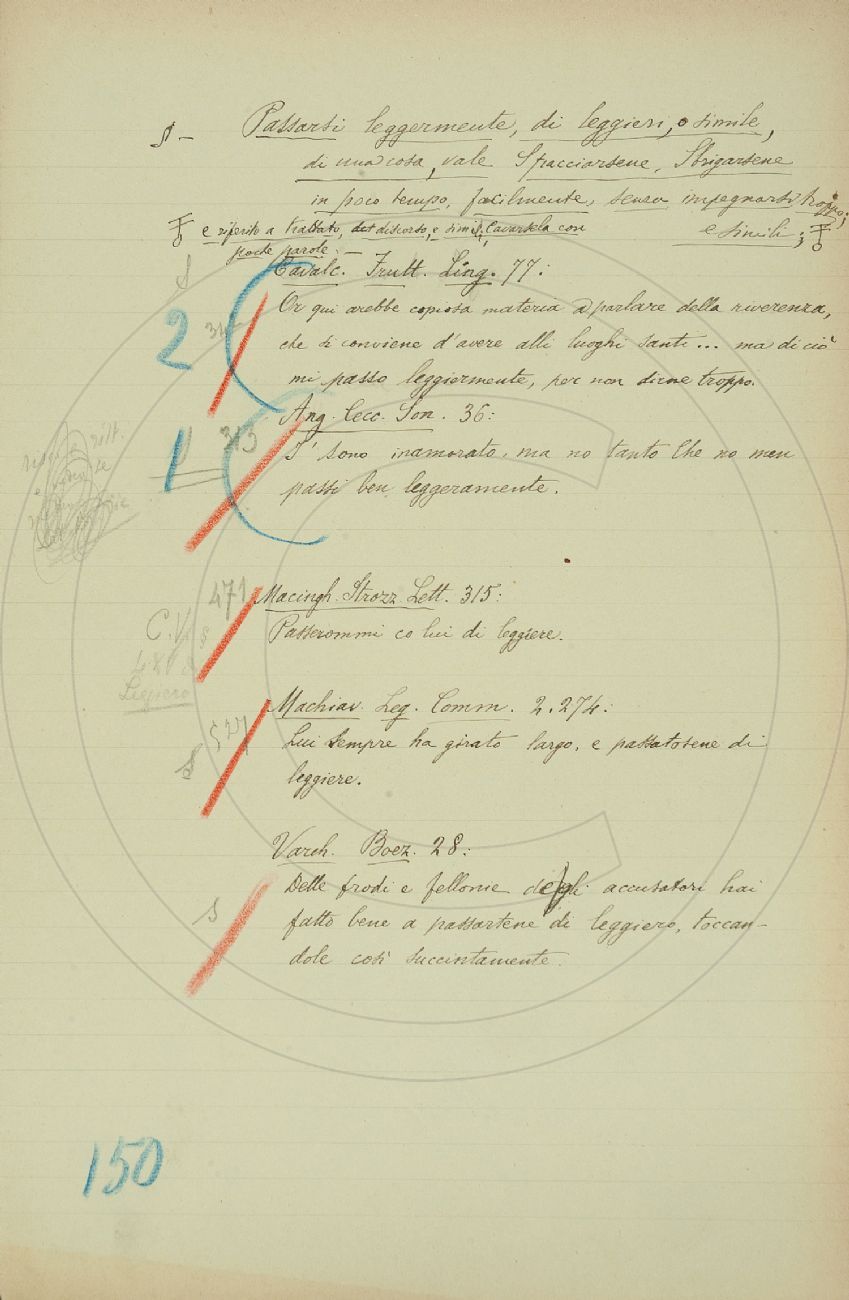 § – Passarsi leggermente, di leggieri, o simile,
di una cosa, vale Spacciarsene, Sbrigarsene
in poco tempo, facilmente, senza impegnarsi troppo;
e simili;
e riferito a trattato, discorso, e simili, Cavarsela con
poche parole. –
Cavalc. Frutt. Ling. 77:
2
Or qui arebbe copiosa materia a parlare della riverenza,
che si conviene d'avere alli luoghi santi... ma di ciò
mi passo leggiermente, per non dirne troppo.
Ang. Cecc. Son. 36:
1 313
I' sono inamorato, ma no tanto Che no men
passi ben leggeramente.
471
Macingh. Strozz. Lett. 315:
Passerommi co lui di leggiere.
C.V. §
Leggiero
Machiav. Leg. Comm. 2. 274:
527
Lui sempre ha girato largo, e passatosene di
leggiere.
Varch. Boez. 28:
Delle frodi e fellonie degli accusatori hai
fatto bene a passartene di leggiero, toccan-
dole così succintamente.
150